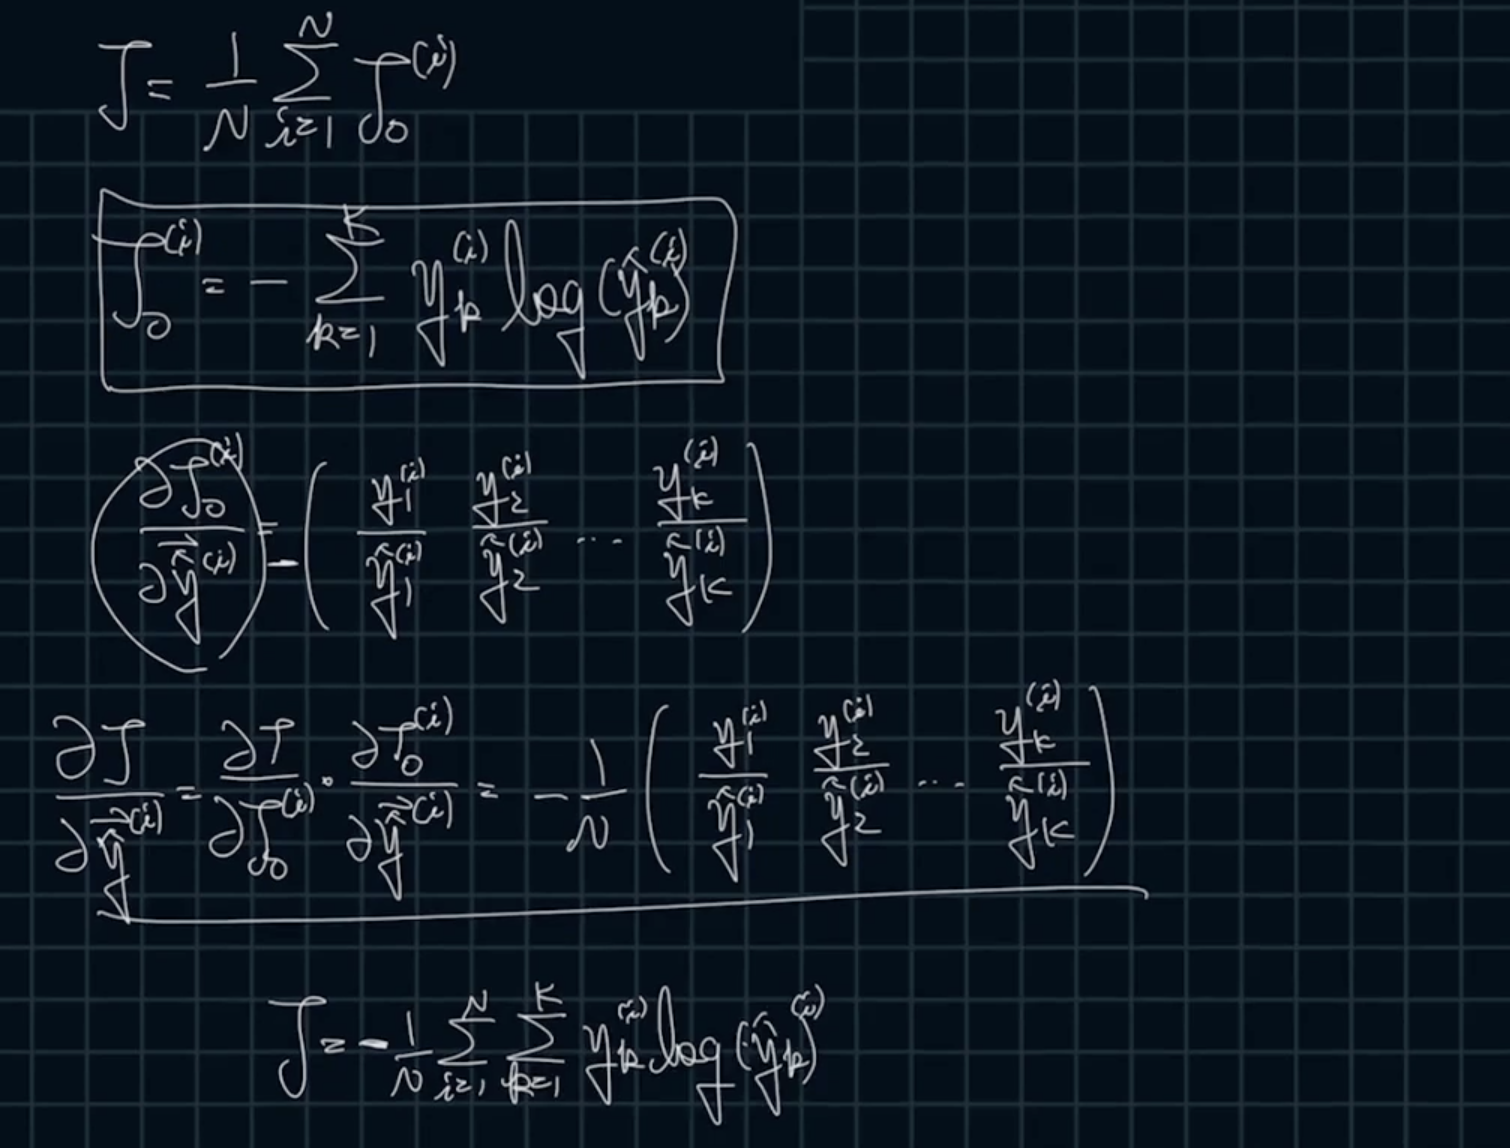 J = \frac{1}{N} \sum_{i=1}^{N} J_0^{(i)}
J_0^{(i)} = - \sum_{k=1}^{K} y_k^{(i)} \log(\hat{y}_k^{(i)})
\frac{\partial J_0^{(i)}}{\partial \vec{\hat{y}}^{(i)}} = - \left( \frac{y_1^{(i)}}{\hat{y}_1^{(i)}} \frac{y_2^{(i)}}{\hat{y}_2^{(i)}} \cdots \frac{y_K^{(i)}}{\hat{y}_K^{(i)}} \right)
\frac{\partial J}{\partial \vec{\hat{y}}^{(i)}} = \frac{\partial J}{\partial J_0^{(i)}} \cdot \frac{\partial J_0^{(i)}}{\partial \vec{\hat{y}}^{(i)}} = - \frac{1}{N} \left( \frac{y_1^{(i)}}{\hat{y}_1^{(i)}} \frac{y_2^{(i)}}{\hat{y}_2^{(i)}} \cdots \frac{y_K^{(i)}}{\hat{y}_K^{(i)}} \right)
J = - \frac{1}{N} \sum_{i=1}^{N} \sum_{k=1}^{K} y_k^{(i)} \log(\hat{y}_k)^{(i)}